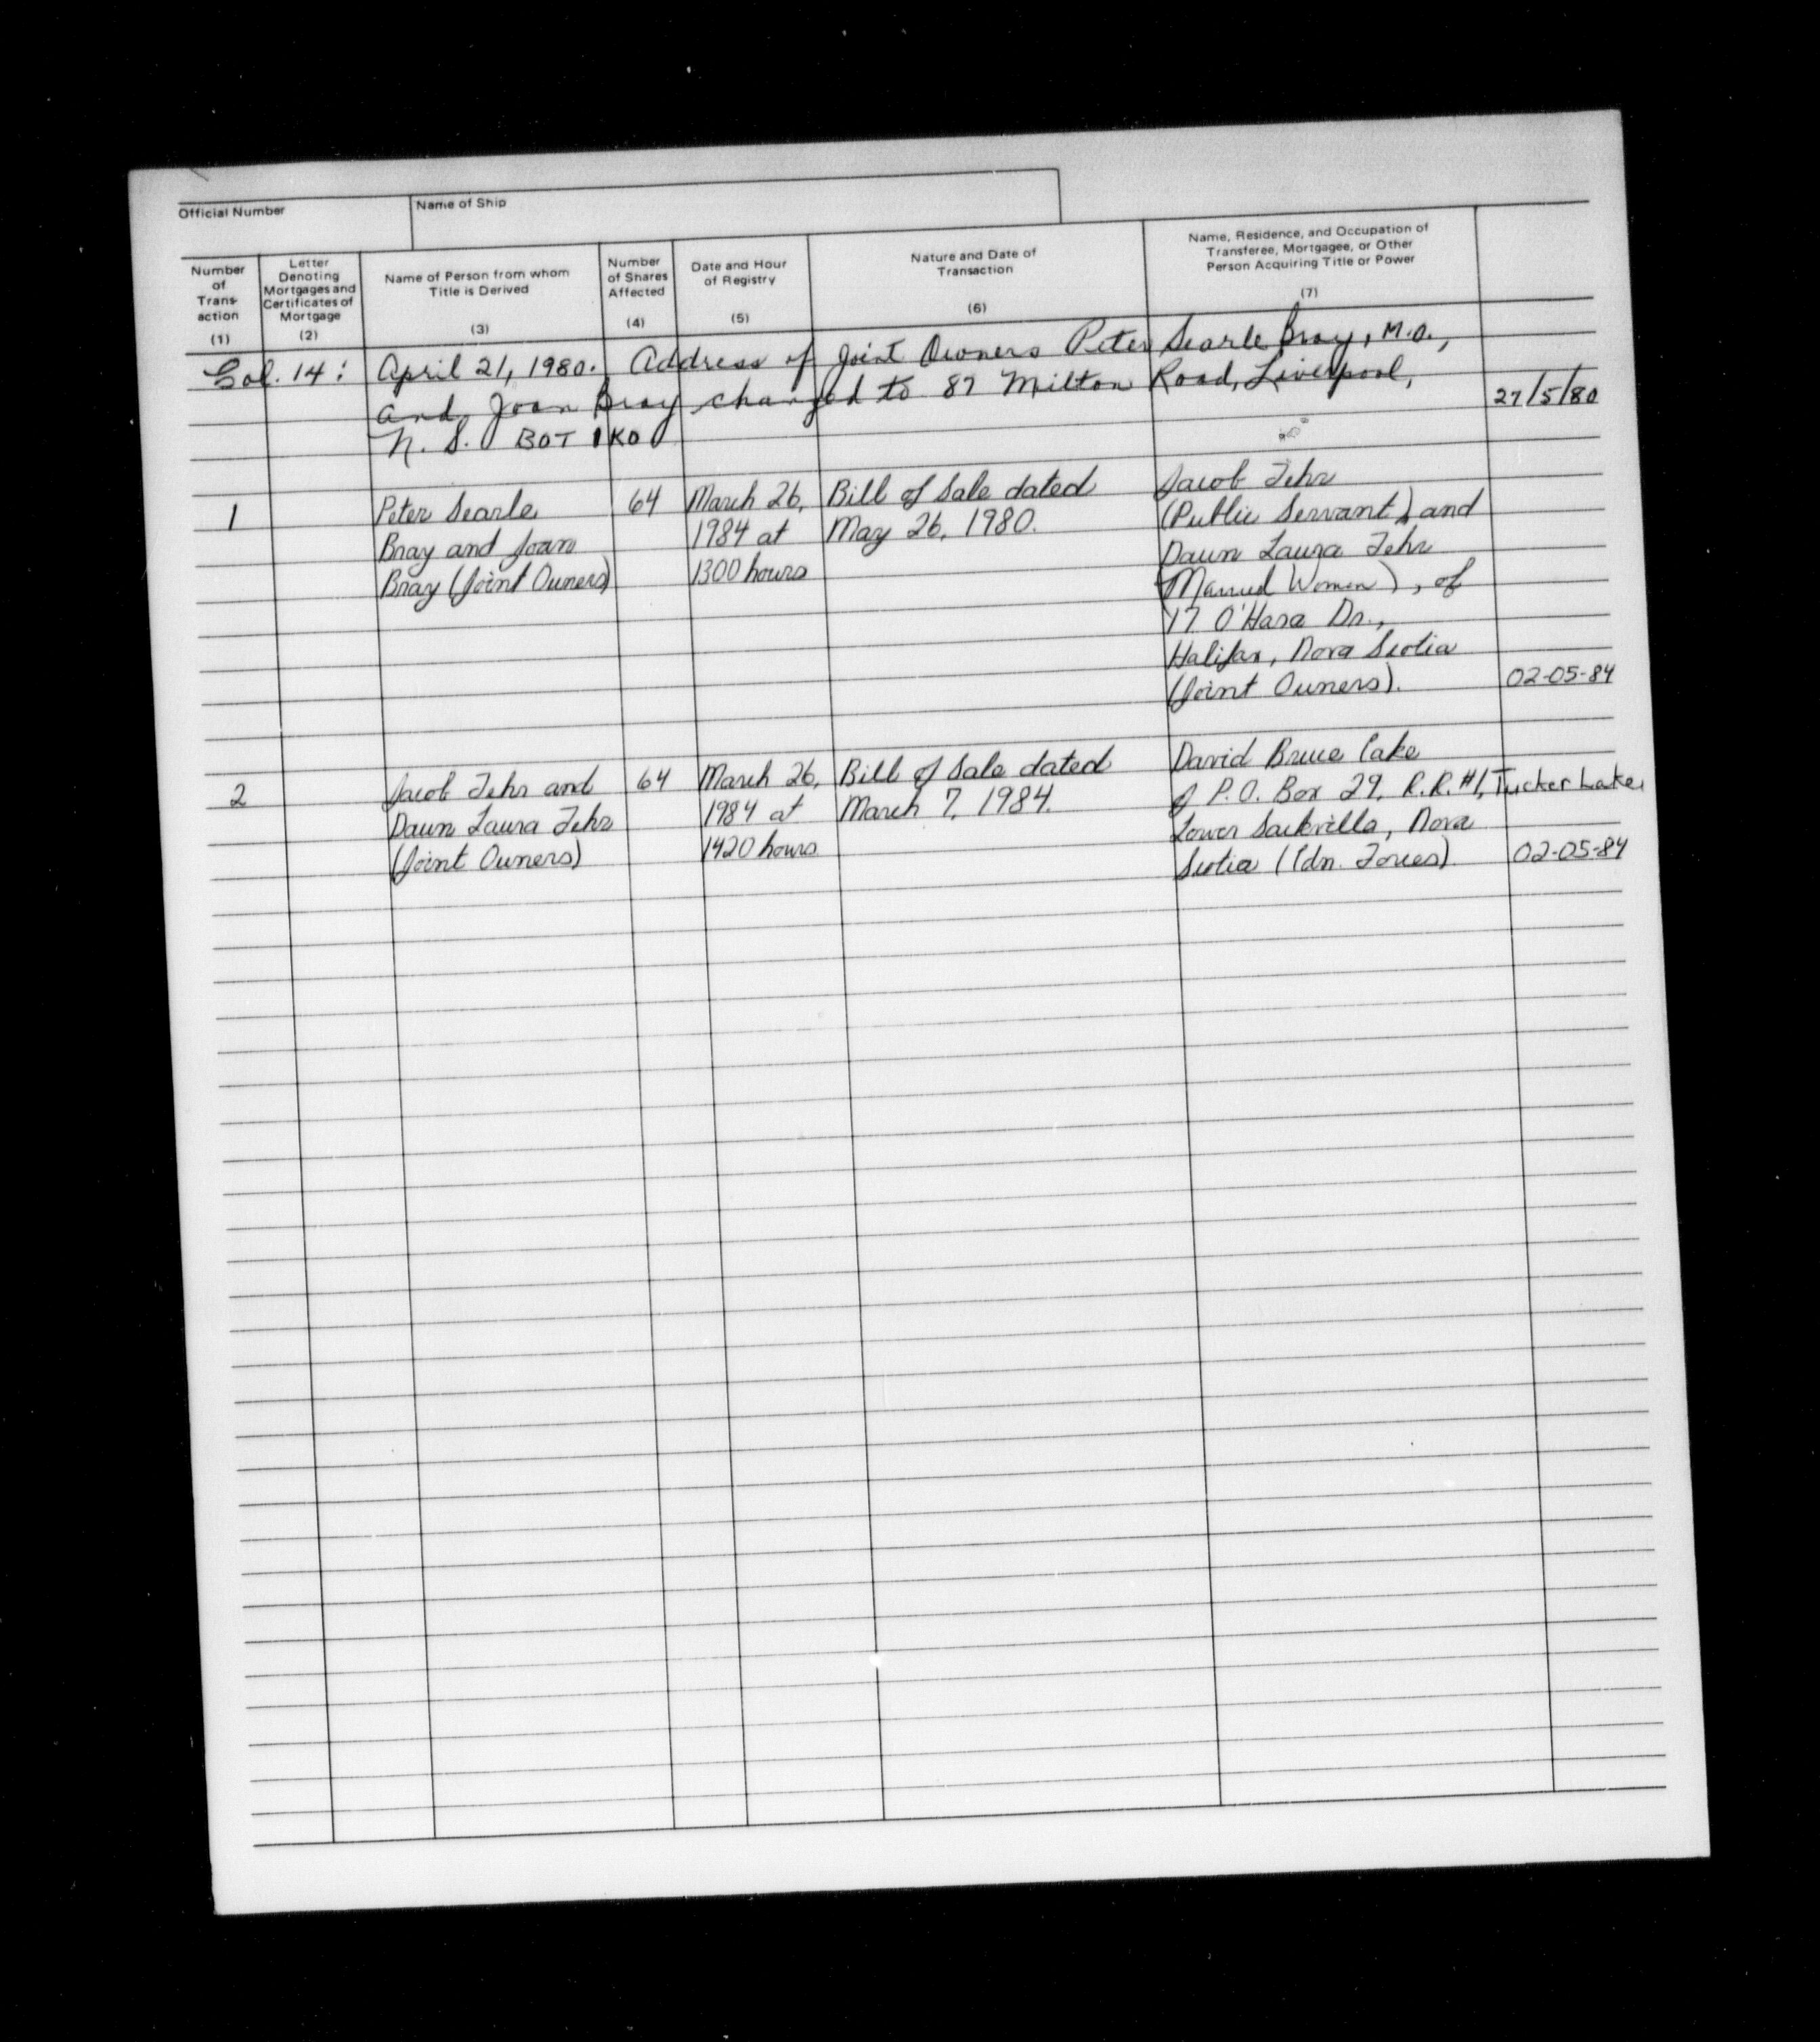 Official Number
Name of Ship
Number of Trans- action (1)
Letter Denoting Mortgages and Certificates of Mortgage (2)
Name of Person from whom Title is Derived (3)
Number of Shares Affected (4)
Date and Hour of Registry (5)
Nature and Date of Transaction (6)
Name, Residence, and Occupation of Transferee, Mortgagee, or Other Person Acquiring Title or Power (7)
Col. 14: April 21, 1980. Address of Joint Owners Peter Searle Bray, M.D.,
and Joan Bray changed to 87 Milton Road, Liverpool,
27/5/80
N. S. BOT 1K0
1
Peter Searle
Bray and Joan
Bray (Joint Owners)
64
March 26,
1984 at
1300 hours
Bill of Sale dated
May 26, 1980.
Jacob Fehr
(Public Servant) and
Daun Laura Fehr
(Married Women), of
17 O'Hara Dr.,
Halifax, Nova Scotia
(Joint Owners).
02-05-84
2
Jacob Fehr and
Daun Laura Fehr
(Joint Owners)
64
March 26,
1984 at
1420 hours
Bill of Sale dated
March 7, 1984.
David Bruce Cake
of P.O. Box 29, R.R. #1, Tucker Lake,
Lower Sackville, Nova
Scotia (Cdn. Forces)
02-05-84